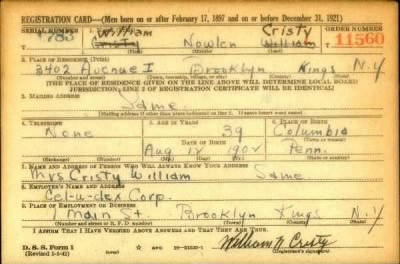 REGISTRATION CARD—(Men born on or after February 17, 1897 and on or before December 31, 1921)
SERIAL NUMBER ORDER NUMBER
William Cristy
783 Cristy Nowlen William 11560
(First) (Middle) (Last)
2. PLACE OF RESIDENCE (Print)
3402 Avenue I Brooklyn Kings N.Y
(Number and street) (Town, township, village, or city) (County) (State)
[THE PLACE OF RESIDENCE GIVEN ON THE LINE ABOVE WILL DETERMINE LOCAL BOARD
JURISDICTION; LINE 2 OF REGISTRATION CERTIFICATE WILL BE IDENTICAL]
3. MAILING ADDRESS
Same.
(Mailing address if other than place indicated on line 2. If same insert word same)
4. TELEPHONE 5. AGE IN YEARS 6. PLACE OF BIRTH
None 39 Columbia
DATE OF BIRTH (Town or county)
Aug 12 1902 Penn.
(Exchange) (Number) (Mo.) (Day) (Yr.) (State or country)
7. NAME AND ADDRESS OF PERSON WHO WILL ALWAYS KNOW YOUR ADDRESS
Mrs Cristy William Same
8. EMPLOYER'S NAME AND ADDRESS
Cel-u-dex Corp.
9. PLACE OF EMPLOYMENT OR BUSINESS
1 Main St. Brooklyn Kings N.Y
(Number and street or R. F. D. number) (Town) (County) (State)
I AFFIRM THAT I HAVE VERIFIED ABOVE ANSWERS AND THAT THEY ARE TRUE.
D. S. S. Form 1
(Revised 1-1-42) William N Cristy
(Registrant's signature)